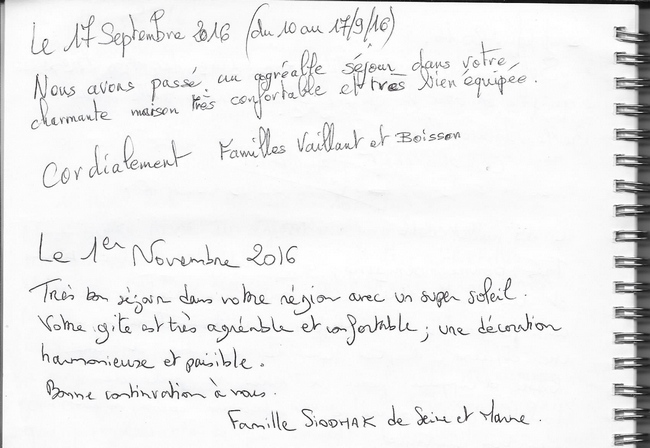 Le 17 Septembre 2016 (du 10 au 17/9/16)
Nous avons passé un agréable séjour dans votre
charmante maison très confortable et très bien équipée.
Cordialement Familles Vaillant et Boisson
Le 1er Novembre 2016
Très bon séjour dans votre région avec un super soleil.
Votre gite est très agréable et confortable ; une décoration
harmonieuse et paisible.
Bonne continuation à vous.
Famille de Seine et Marne.